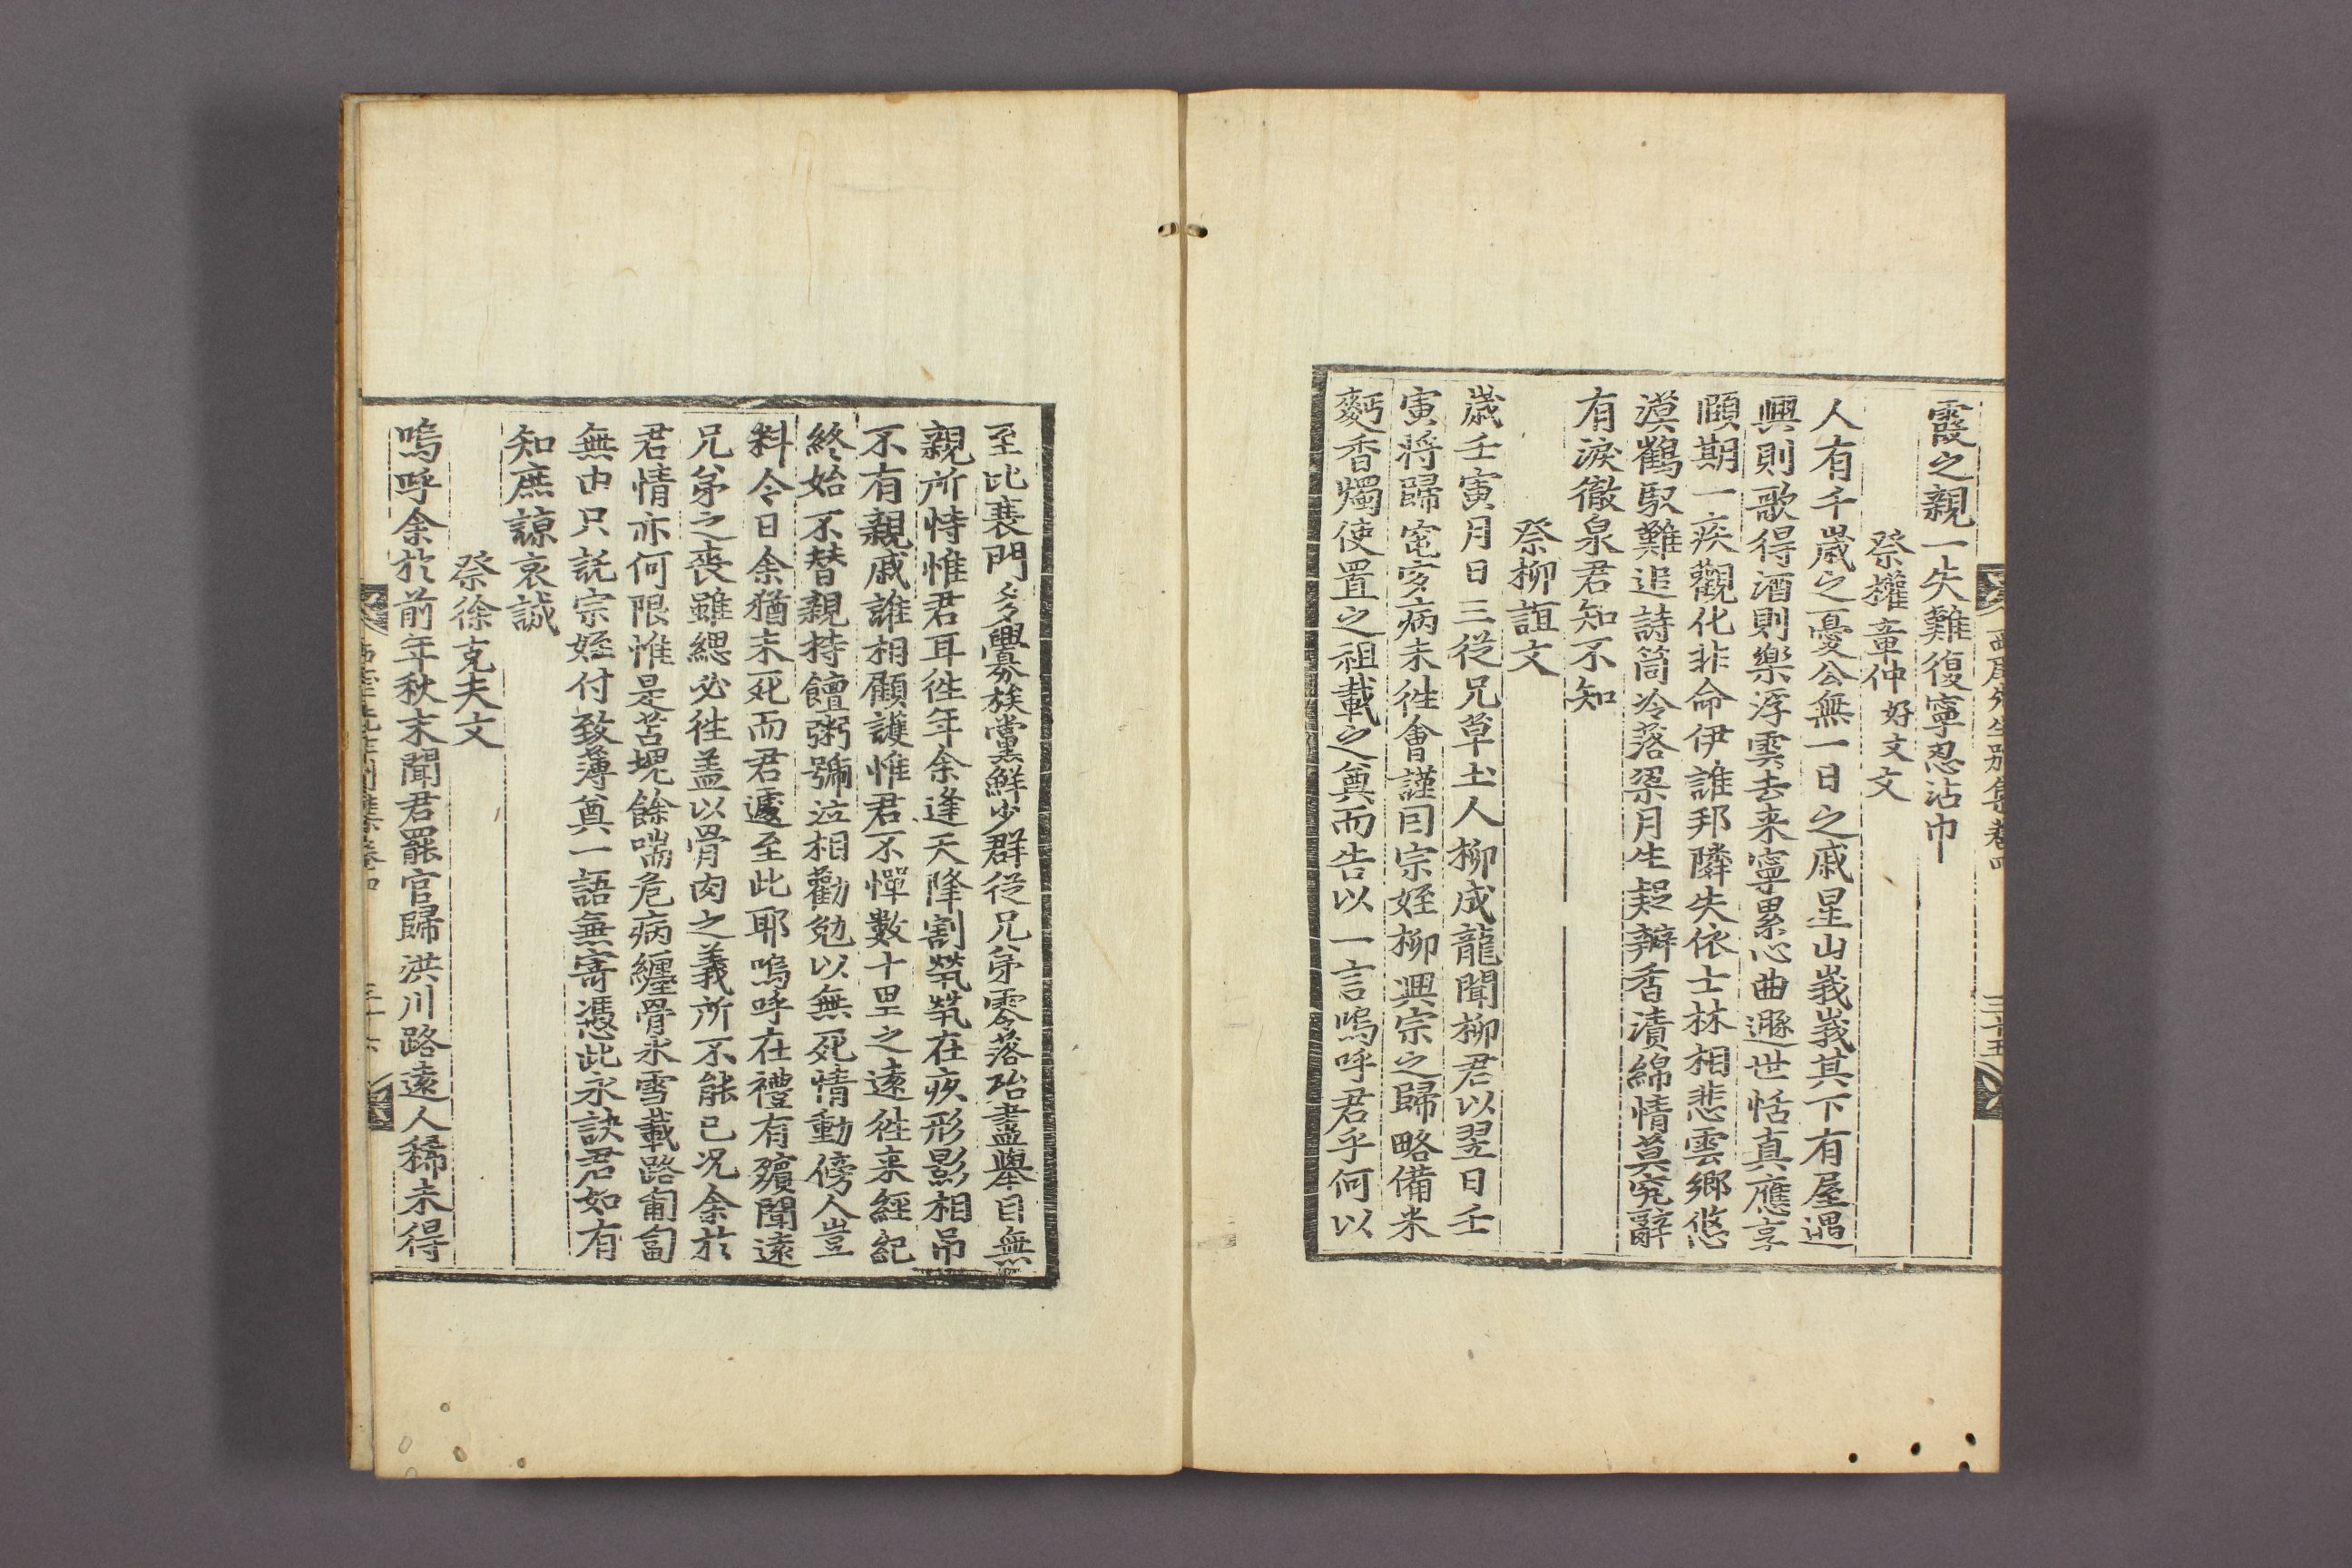 霞之親一失難復寧忍沾巾
祭權章仲好文文
人有千歲之憂公無一日之戚星山峩峩其下有屋遇
興則歌得酒則樂浮雲去来寧累心曲遯世恬真應享
頤期一疾觀化非命伊誰邦隣失依士林相悲雲鄉悠
漠鶴馭難追詩筒冷落梁月生疑瓣香漬綿情莫究辭
有淚徹泉君知不知
祭柳誼文
歲壬寅月日三從兄草土人柳成龍聞柳君以翌日壬
寅將歸窀穸病未徃會謹因宗姪柳興宗之歸略備米
麪香燭使置之祖載之奠而告以一言嗚呼君乎何以
至此衰門多釁族黨鮮少群從兄弟零落殆盡擧目無
親所恃惟君耳徃年余逢天降割煢煢在疚形影相吊
不有親戚誰相顧護惟君不憚數十里之遠徃来經紀
終始不替親持饘粥號泣相勸勉以無死情動傍人豈
料今日余猶未死而君遽至此耶嗚呼在禮有殯聞遠
兄弟之喪雖緦必徃盖以骨肉之義所不能已况余於
君情亦何限惟是苫塊餘喘危病纏骨氷雪載路匍匐
無由只託宗姪付致薄奠一語無寄憑此永訣君如有
知庶諒哀誠
祭徐克夫文
嗚呼余於前年秋末聞君罷官歸洪川路遠人稀未得